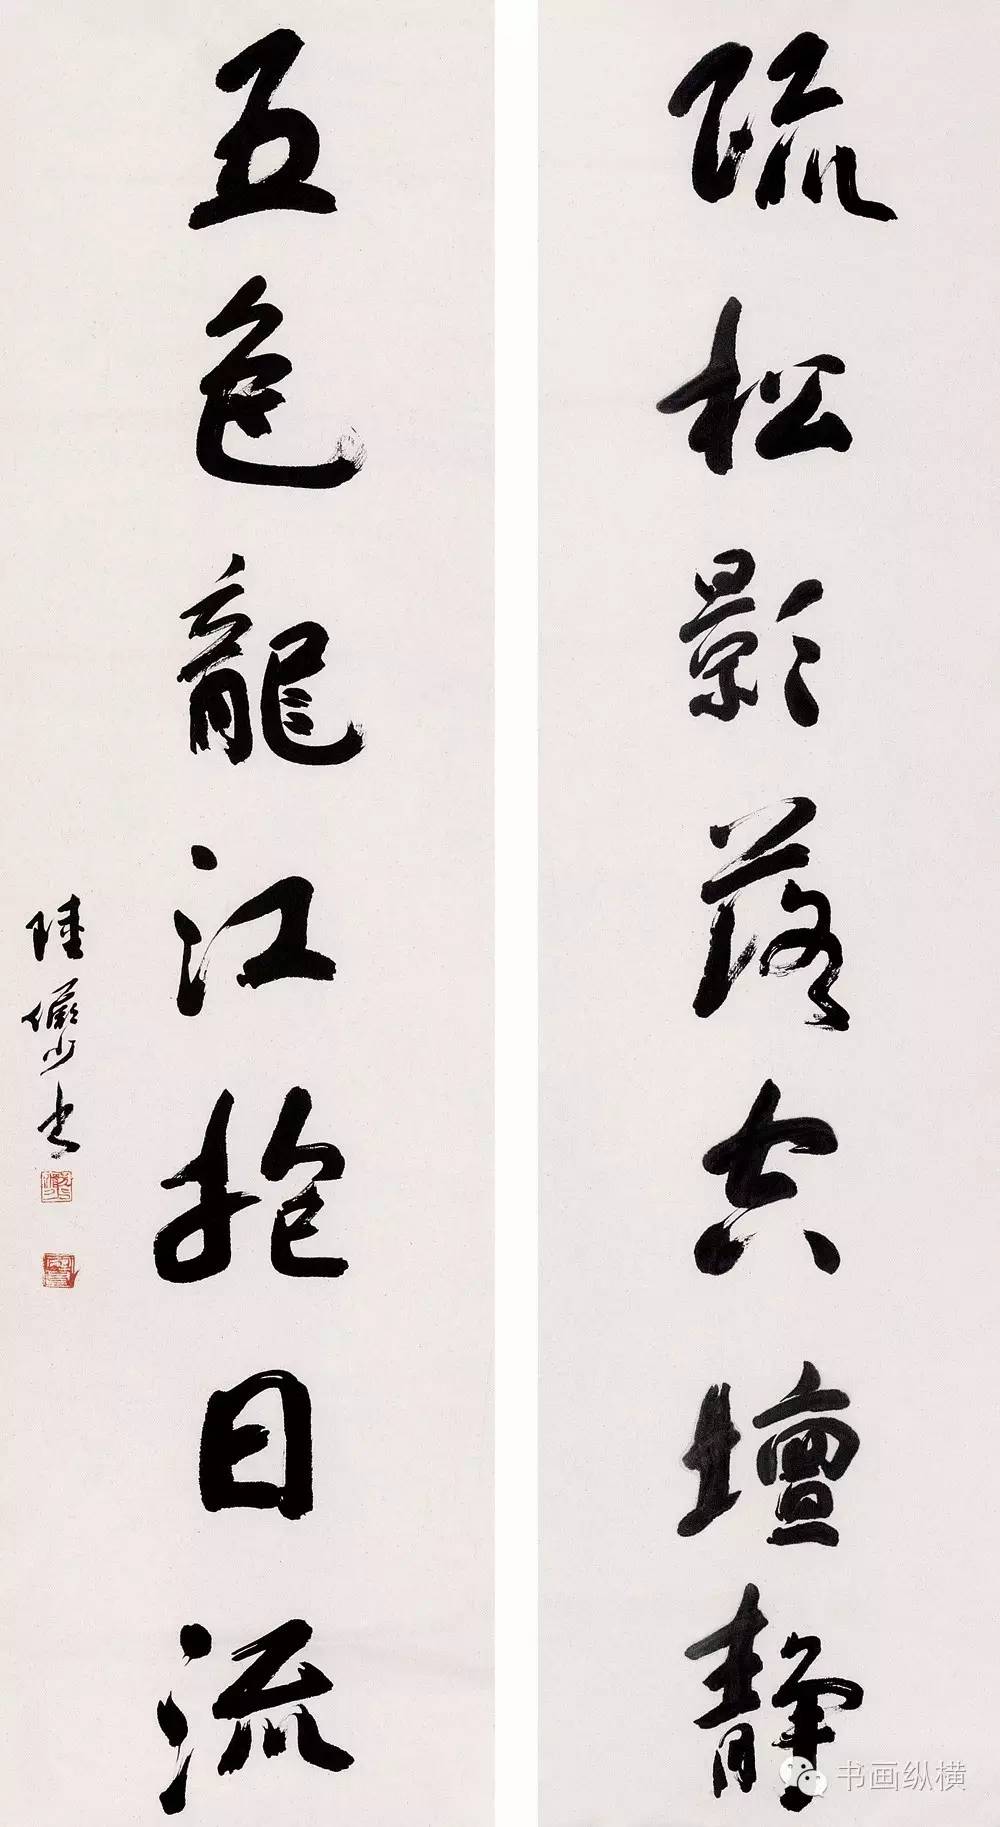 疏松影落空壇静
五色龍江抱日流
陸儼少書
书画纵横